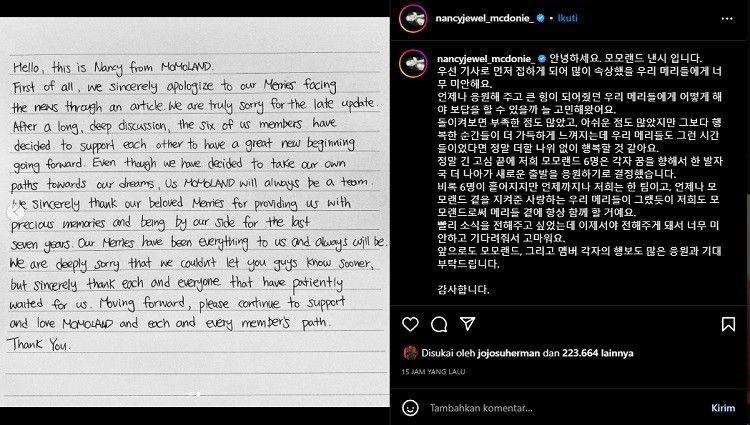 Hello, this is Nancy from MOMOLAND.
First of all, we sincerely apologize to our Merries facing
the news through an article. We are truly sorry for the late update.
After a long, deep discussion, the six of us members have
decided to support each other to have a great new beginning
going forward. Even though we have decided to take our own
paths towards our dreams, us MOMOLAND will always be a team.
We sincerely thank our beloved Merries for providing us with
precious memories and being by our side for the last
seven years. Our Merries have been everything to us and always will be.
We are deeply sorry that we couldn't let you guys know sooner,
but sincerely thank each and everyone that have patiently
waited for us. Moving forward, please continue to support
and love MOMOLAND and each and every member's path.
Thank You.
nancyjewel_mcdonie_ • Ikuti
nancyjewel_mcdonie_ 안녕하세요. 모모랜드 낸시 입니다.
우선 기사로 먼저 접하게 되어 많이 속상했을 우리 메리들에게 너
무 미안해요.
언제나 응원해 주고 큰 힘이 되어줬던 우리 메리들에게 어떻게 해
야 보답을 할 수 있을까 늘 고민해왔어요.
돌이켜보면 부족한 점도 많았고, 아쉬운 점도 많았지만 그보다 행
복한 순간들이 더 가득하게 느껴지는데 우리 메리들도 그런 시간
들이었다면 정말 더할 나위 없이 행복할 것 같아요.
정말 긴 고심 끝에 저희 모모랜드 6명은 각자 꿈을 향해서 한 발자
국 더 나아가 새로운 출발을 응원하기로 결정했습니다.
비록 6명이 흩어지지만 언제까지나 저희는 한 팀이고, 언제나 모
모랜드 곁을 지켜준 사랑하는 우리 메리들이 그랬듯이 저희도 모
모랜드로써 메리들 곁에 항상 함께 할 거예요.
빨리 소식을 전해주고 싶었는데 이제서야 전해주게 돼서 너무 미
안하고 기다려줘서 고마워요.
앞으로도 모모랜드, 그리고 멤버 각자의 행보도 많은 응원과 기대
부탁드립니다.
감사합니다.
Disukai oleh jojosuherman dan 223.664 lainnya
15 JAM YANG LALU
Tambahkan komentar...
Kirim